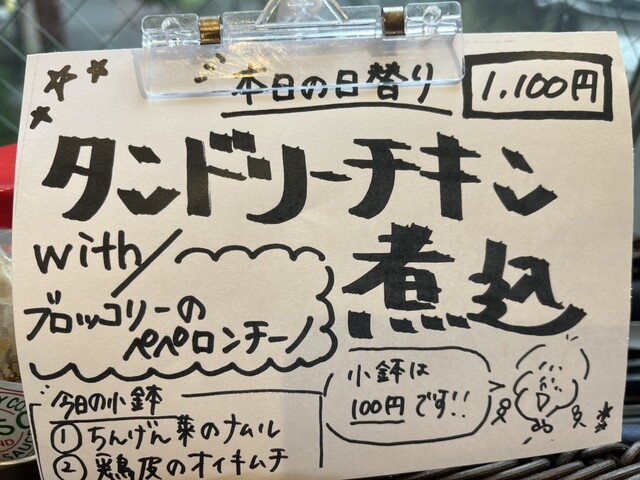 本日の日替り
1.100円
タンドリーチキン
煮込
with
ブロッコリーの
ペペロンチーノ
小鉢は
100円です!!
今日の小鉢
① ちんげん菜のナムル
② 鶏皮のオイキムチ